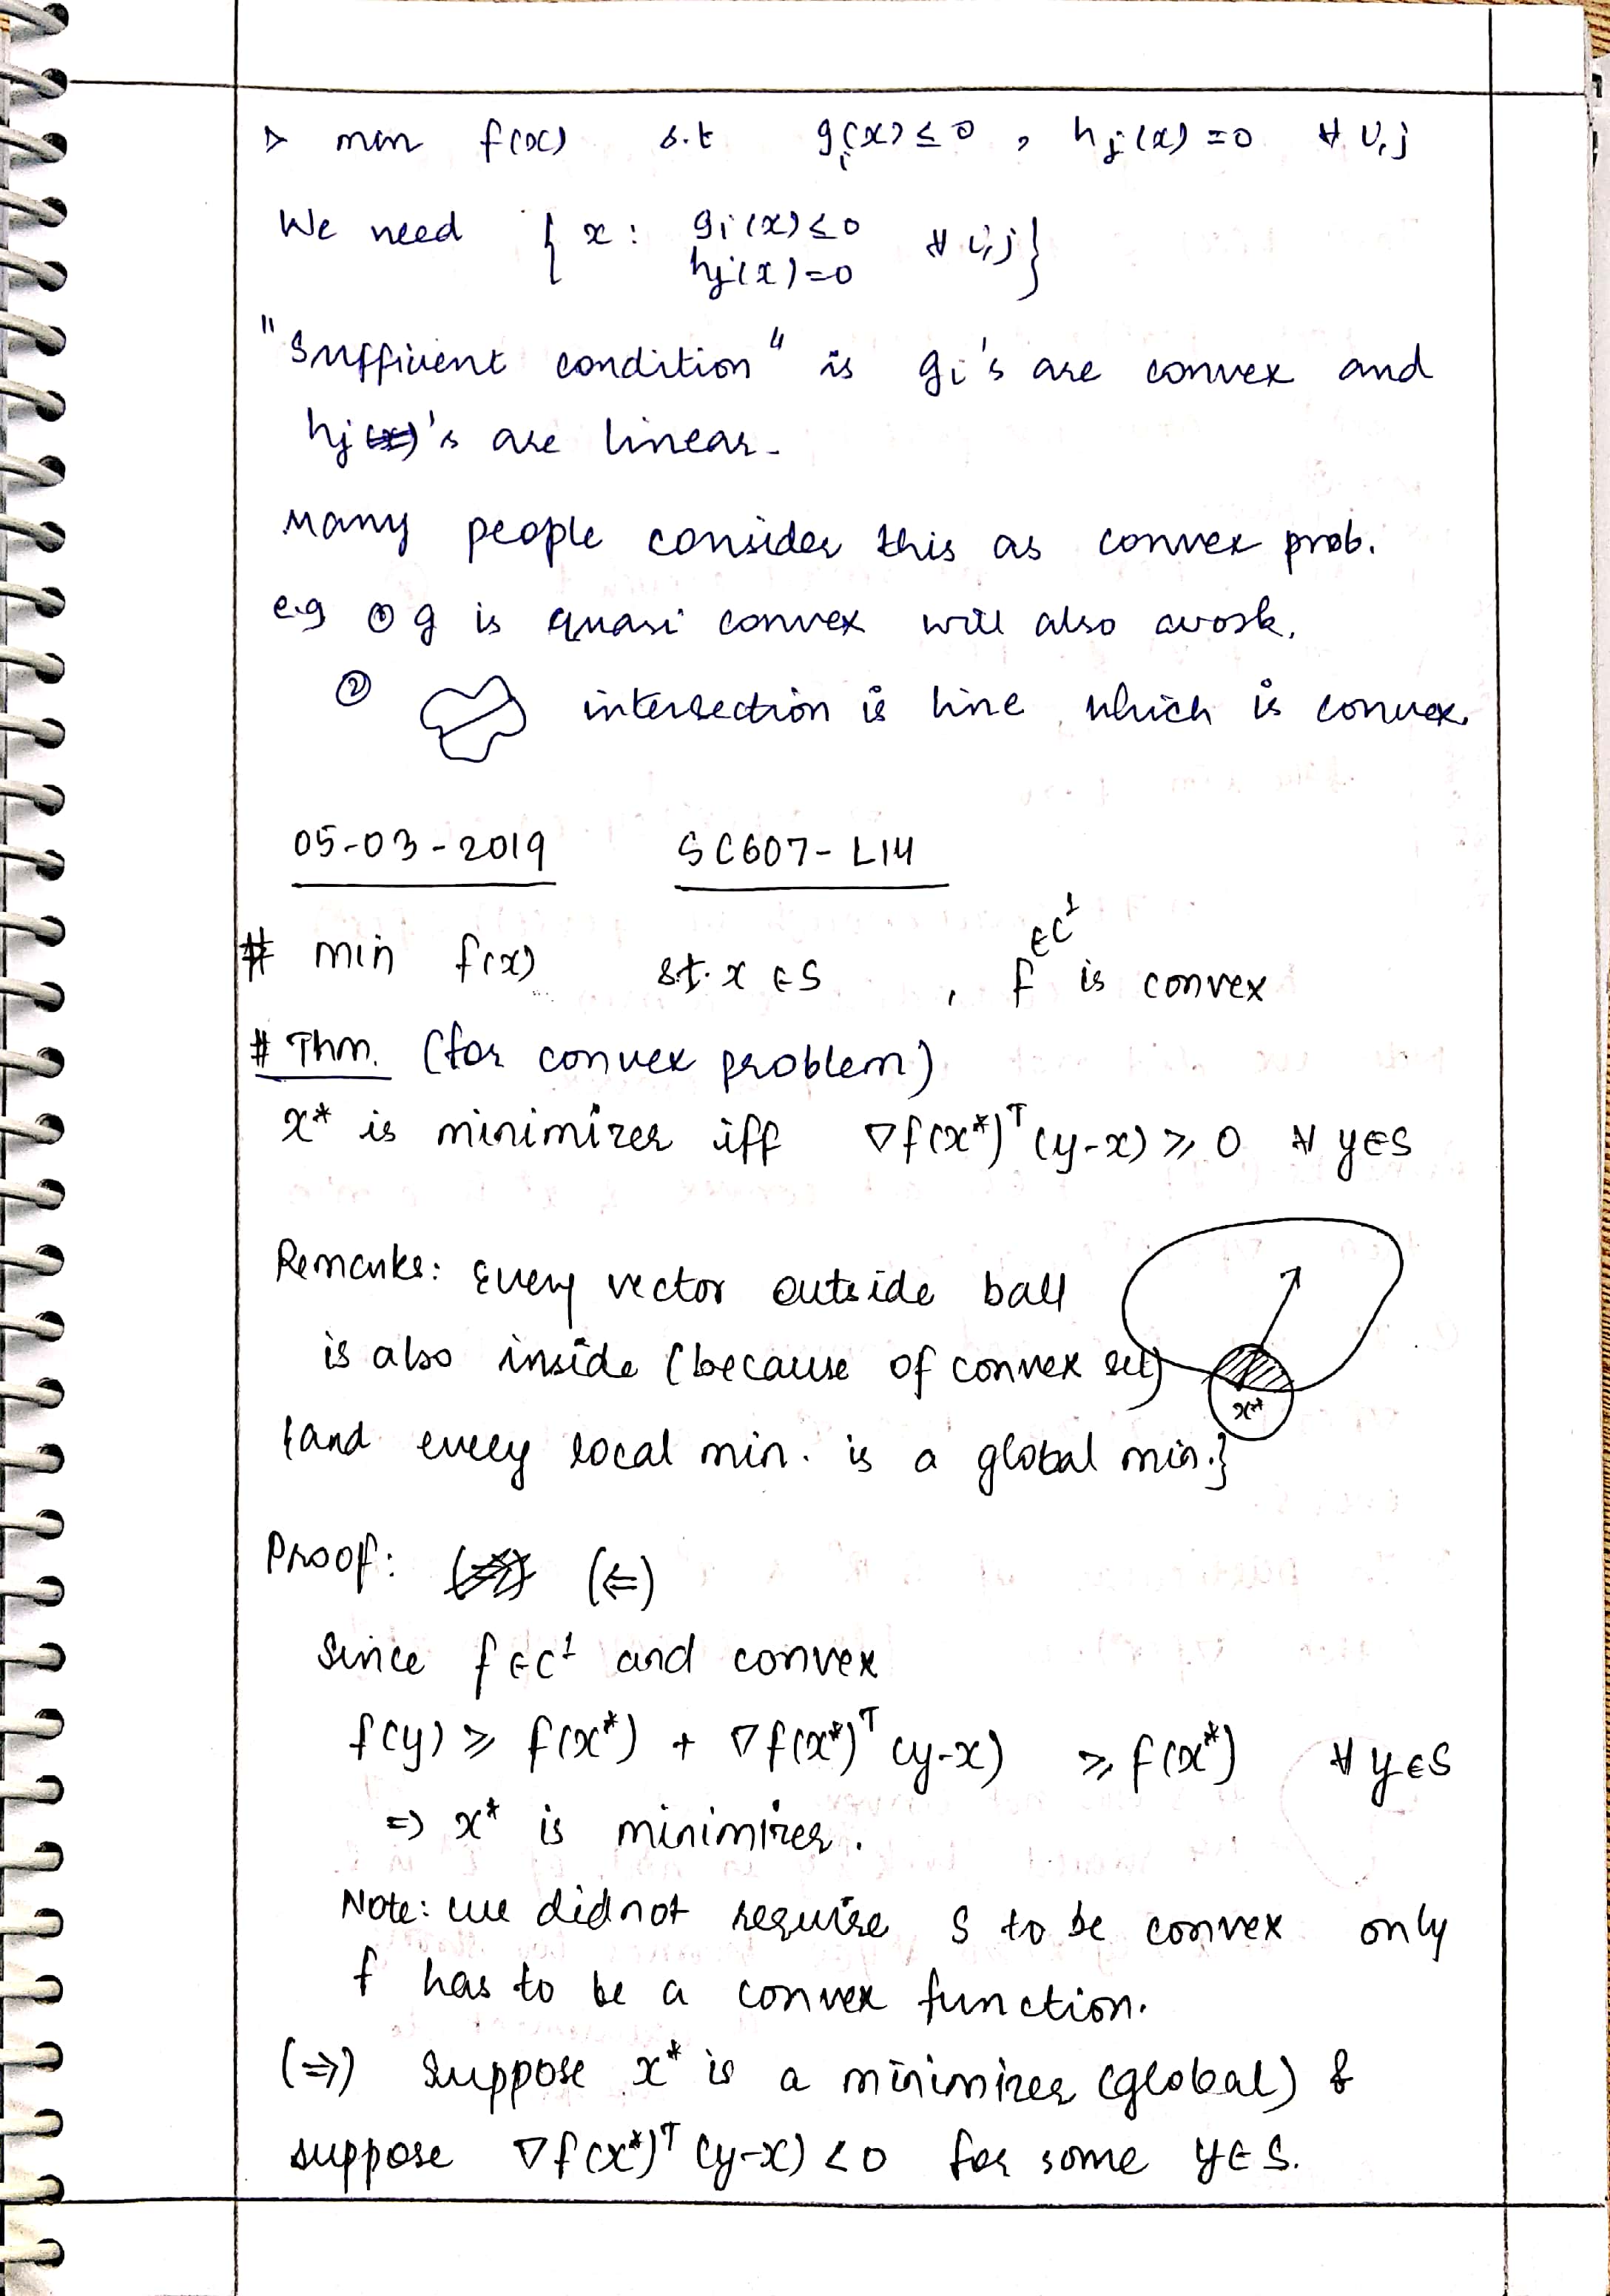 ▷ min f(x) s.t g_i(x) ≤ 0 , h_j(x) = 0 ∀ i,j
We need { x : g_i(x) ≤ 0 h_j(x) = 0 ∀ i,j }
"Sufficient condition" is g_i's are convex and
h_j's are linear.
Many people consider this as convex prob.
e.g ① g is quasi convex will also work.
② intersection is line which is convex.
05-03-2019 SC607-L14
# min f(x) s.t. x ∈ S , f ∈C¹ is convex
# Thm. (for convex problem)
x* is minimizer iff ∇f(x*)ᵀ(y-x) ≥ 0 ∀ y∈S
Remarks: Every vector outside ball
is also inside (because of convex set)
{and every local min. is a global min.}
x*
Proof: (⇐)
Since f∈C¹ and convex
f(y) ≥ f(x*) + ∇f(x*)ᵀ(y-x) ≥ f(x*) ∀ y∈S
⇒ x* is minimizer.
Note: we did not require S to be convex only
f has to be a convex function.
(⇒) Suppose x* is a minimizer (global) &
suppose ∇f(x*)ᵀ(y-x) < 0 for some y∈S.